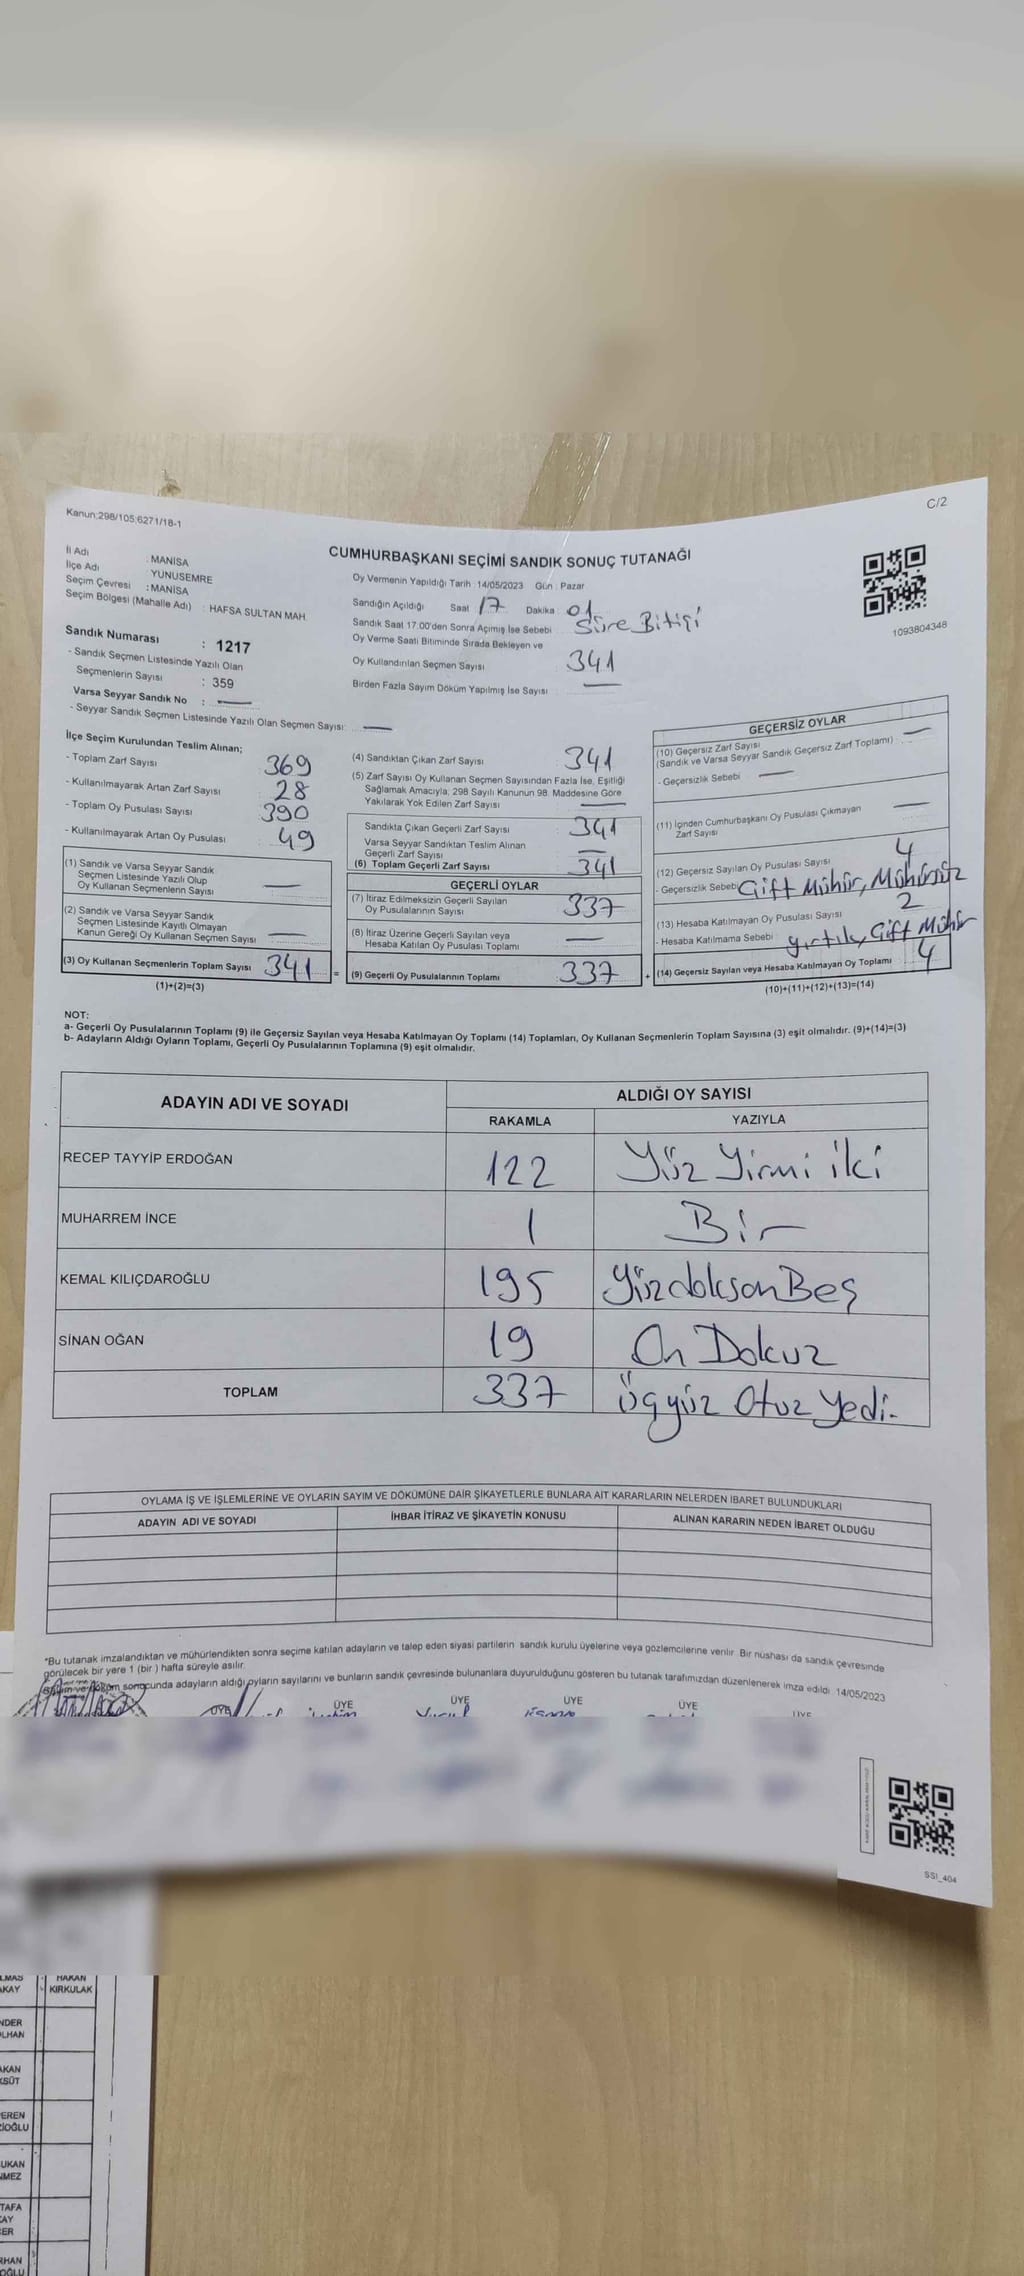 C/2
Kanun:298/105;6271/18-1
CUMHURBAŞKANI SEÇİMİ SANDIK SONUÇ TUTANAĞI
İl Adı : MANİSA
İlçe Adı : YUNUSEMRE
Seçim Çevresi : MANİSA
Seçim Bölgesi (Mahalle Adı) : HAFSA SULTAN MAH.
Sandık Numarası : 1217
- Sandık Seçmen Listesinde Yazılı Olan
Seçmenlerin Sayısı : 359
Varsa Seyyar Sandık No :
- Seyyar Sandık Seçmen Listesinde Yazılı Olan Seçmen Sayısı:
Oy Vermenin Yapıldığı Tarih : 14/05/2023 Gün : Pazar
Sandığın Açıldığı Saat 17 Dakika : 01
Sandık Saat 17:00'den Sonra Açılmış İse Sebebi Süre Bitiği
Oy Verme Saati Bitiminde Sırada Bekleyen ve
Oy Kullandırılan Seçmen Sayısı 341
Birden Fazla Sayım Döküm Yapılmış İse Sayısı
1093804348
İlçe Seçim Kurulundan Teslim Alınan;
- Toplam Zarf Sayısı : 369
- Kullanılmayarak Artan Zarf Sayısı : 28
- Toplam Oy Pusulası Sayısı : 390
- Kullanılmayarak Artan Oy Pusulası : 49
(1) Sandık ve Varsa Seyyar Sandık
Seçmen Listesinde Yazılı Olup
Oy Kullanan Seçmenlerin Sayısı
(2) Sandık ve Varsa Seyyar Sandık
Seçmen Listesinde Kayıtlı Olmayan
Kanun Gereği Oy Kullanan Seçmen Sayısı
(3) Oy Kullanan Seçmenlerin Toplam Sayısı 341
(1)+(2)=(3)
(4) Sandıktan Çıkan Zarf Sayısı 341
(5) Zarf Sayısı Oy Kullanan Seçmen Sayısından Fazla İse, Eşitliği
Sağlamak Amacıyla; 298 Sayılı Kanunun 98. Maddesine Göre
Yakılarak Yok Edilen Zarf Sayısı
Sandıkta Çıkan Geçerli Zarf Sayısı 341
Varsa Seyyar Sandıktan Teslim Alınan
Geçerli Zarf Sayısı
(6) Toplam Geçerli Zarf Sayısı 341
GEÇERLİ OYLAR
(7) İtiraz Edilmeksizin Geçerli Sayılan
Oy Pusulalarının Sayısı 337
(8) İtiraz Üzerine Geçerli Sayılan veya
Hesaba Katılan Oy Pusulası Toplamı
= (9) Geçerli Oy Pusulalarının Toplamı 337
GEÇERSİZ OYLAR
(10) Geçersiz Zarf Sayısı
(Sandık ve Varsa Seyyar Sandık Geçersiz Zarf Toplamı)
- Geçersizlik Sebebi
(11) İçinden Cumhurbaşkanı Oy Pusulası Çıkmayan
Zarf Sayısı
(12) Geçersiz Sayılan Oy Pusulası Sayısı 4
- Geçersizlik Sebebi Çift Mühür, Mühürsüz
(13) Hesaba Katılmayan Oy Pusulası Sayısı 2
- Hesaba Katılmama Sebebi : yırtık, Çift Mühür
+ (14) Geçersiz Sayılan veya Hesaba Katılmayan Oy Toplamı 4
(10)+(11)+(12)+(13)=(14)
NOT:
a- Geçerli Oy Pusulalarının Toplamı (9) ile Geçersiz Sayılan veya Hesaba Katılmayan Oy Toplamı (14) Toplamları, Oy Kullanan Seçmenlerin Toplam Sayısına (3) eşit olmalıdır. (9)+(14)=(3)
b- Adayların Aldığı Oyların Toplamı, Geçerli Oy Pusulalarının Toplamına (9) eşit olmalıdır.
ADAYIN ADI VE SOYADI
ALDIĞI OY SAYISI
RAKAMLA YAZIYLA
RECEP TAYYİP ERDOĞAN 122 Yüz Yirmi iki
MUHARREM İNCE 1 Bir
KEMAL KILIÇDAROĞLU 195 YüzdoksanBeş
SİNAN OĞAN 19 On Dokuz
TOPLAM 337 Üçyüz Otuz Yedi
OYLAMA İŞ VE İŞLEMLERİNE VE OYLARIN SAYIM VE DÖKÜMÜNE DAİR ŞİKAYETLERLE BUNLARA AİT KARARLARIN NELERDEN İBARET BULUNDUKLARI
ADAYIN ADI VE SOYADI İHBAR İTİRAZ VE ŞİKAYETİN KONUSU ALINAN KARARIN NEDEN İBARET OLDUĞU
*Bu tutanak imzalandıktan ve mühürlendikten sonra seçime katılan adayların ve talep eden siyasi partilerin sandık kurulu üyelerine veya gözlemcilerine verilir. Bir nüshası da sandık çevresinde
görülecek bir yere 1 (bir ) hafta süreyle asılır.
Sayım ve döküm sonucunda adayların aldığı oyların sayılarını ve bunların sandık çevresinde bulunanlara duyurulduğunu gösteren bu tutanak tarafımızdan düzenlenerek imza edildi. 14/05/2023
ÜYE ÜYE ÜYE ÜYE ÜYE ÜYE
SSI_404
HAKAN
KIRKULAK